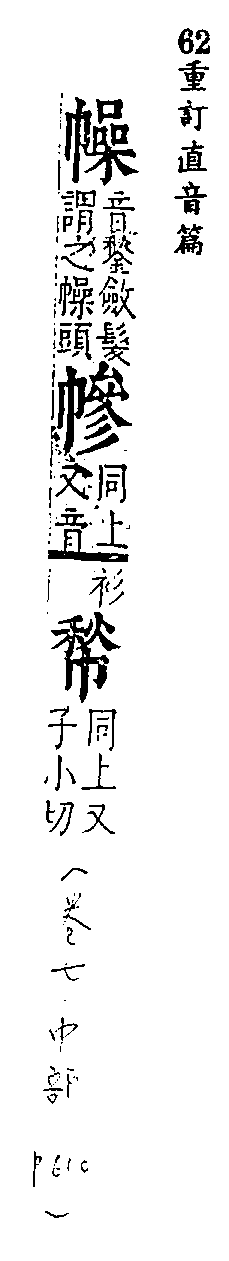 62重訂直音篇
幧音鍫斂髮
謂之幧頭
幓同上
又音
衫
同上又
子小切
(卷七·巾部
P61c
)